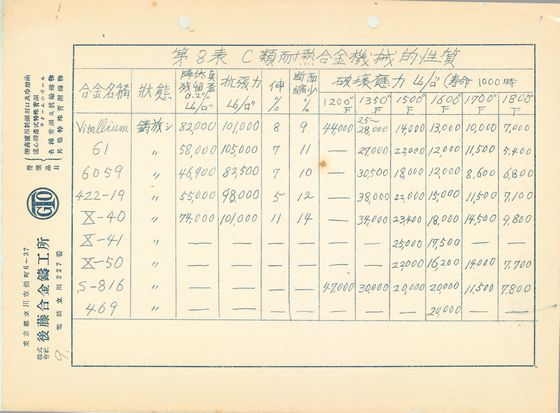 第8表 C類耐熱合金機械的性質
合金名稱 狀態 降伏点 残留歪 0.2% Lb/□" 抗張力 Lb/□" 伸 % 断面縮少 % 破壊應力 Lb/□" (寿命 1000時
1200°F 1350°F 1500°F 1600°F 1700°F 1800°F
Vitallium 鋳放シ 82,000 101,000 8 9 44000 25~28,000 14,000 13,000 10,000 7,000
61 〃 58,000 105,000 7 11 — 27,000 22,000 12,000 11,500 5,400
6059 〃 46,900 82,500 7 10 — 30,500 18,000 12,000 8,600 6,800
422-19 〃 55,000 98,000 5 12 — 38,000 22,000 15,000 11,500 7,100
X-40 〃 74,000 101,000 11 14 — 34,000 23,400 18,000 14,500 9,800
X-41 〃 — — — — — — 25,000 17,500 — —
X-50 〃 — — — — — — 22,000 16,200 14,000 7,700
S-816 〃 — — — — 47,000 30,000 20,000 20,000 11,500 7,800
469 〃 — — — — — — — 20,000
営業品目
各種普通及抗蝕鋳物
其他特殊鋳物
GTO
東京都立川市錦町6~37
株式会社 後藤合金鑄工所
電話立川227番
9.